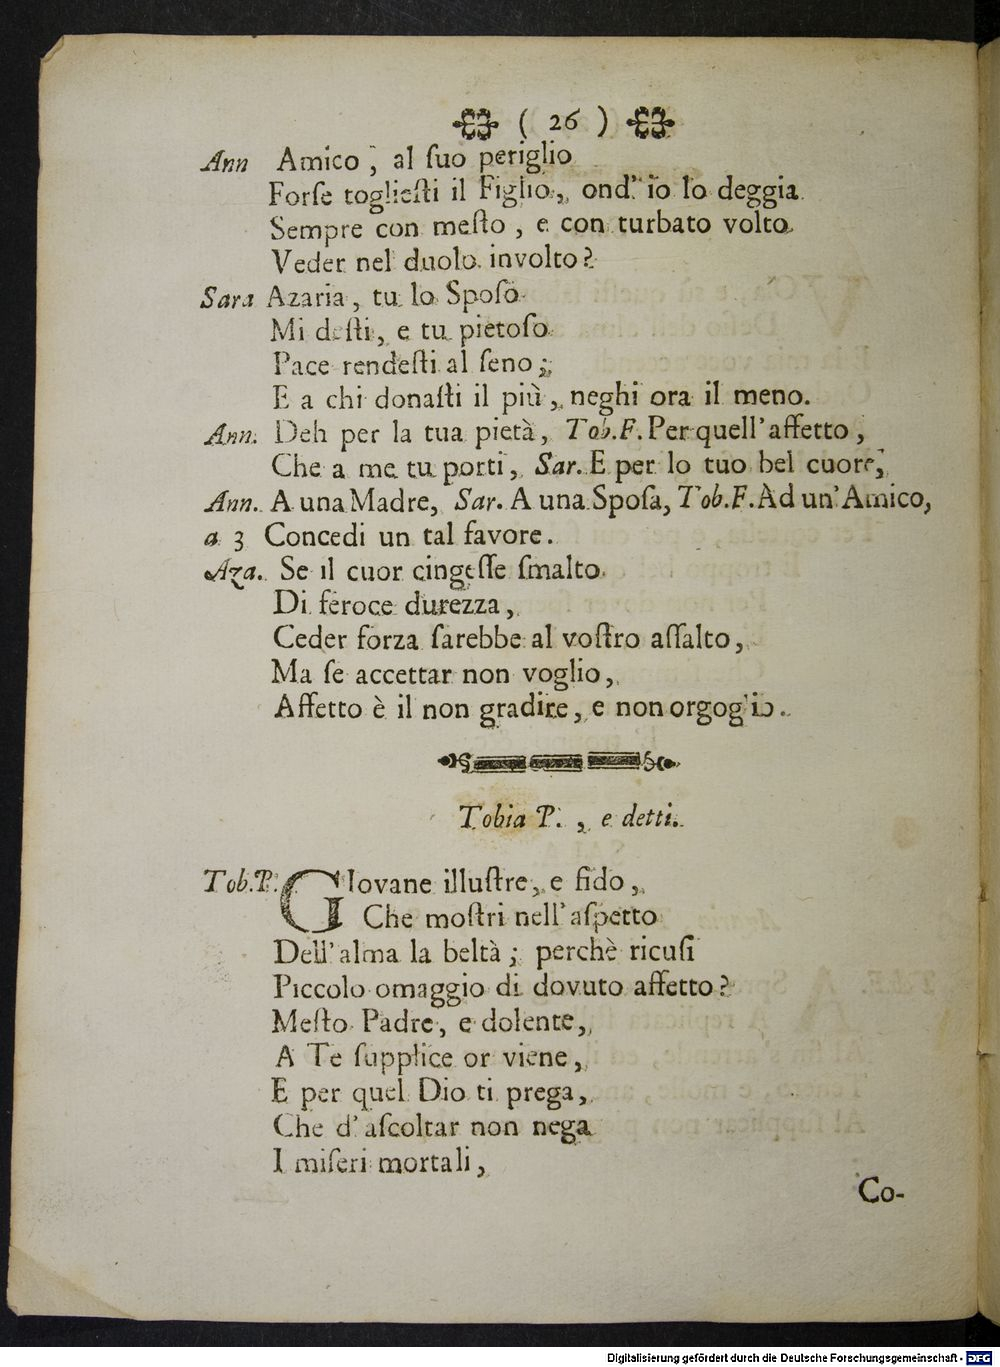 ( 26 )
Ann Amico, al ſuo periglio
Forſe toglieſti il Figlio, ond' io lo deggia
Sempre con meſto, e con turbato volto
Veder nel duolo involto?
Sara Azaria, tu lo Spoſo
Mi deſti, e tu pietoſo
Pace rendeſti al ſeno;
E a chi donaſti il più, neghi ora il meno.
Ann. Deh per la tua pietà, Tob.F. Per quell'affetto,
Che a me tu porti, Sar. E per lo tuo bel cuore,
Ann. A una Madre, Sar. A una Spoſa, Tob.F. Ad un' Amico,
a 3 Concedi un tal favore.
Aza. Se il cuor cingeſſe ſmalto
Di feroce durezza,
Ceder forza ſarebbe al voſtro aſſalto,
Ma ſe accettar non voglio,
Affetto è il non gradire, e non orgoglio.
Tobia P., e detti.
Tob.P. GIovane illuſtre, e fido,
Che moſtri nell'aſpetto
Dell'alma la beltà; perchè ricuſi
Piccolo omaggio di dovuto affetto?
Meſto Padre, e dolente,
A Te ſupplice or viene,
E per quel Dio ti prega,
Che d'aſcoltar non nega
I miſeri mortali,
Co-
Digitalisierung gefördert durch die Deutsche Forschungsgemeinschaft - DFG